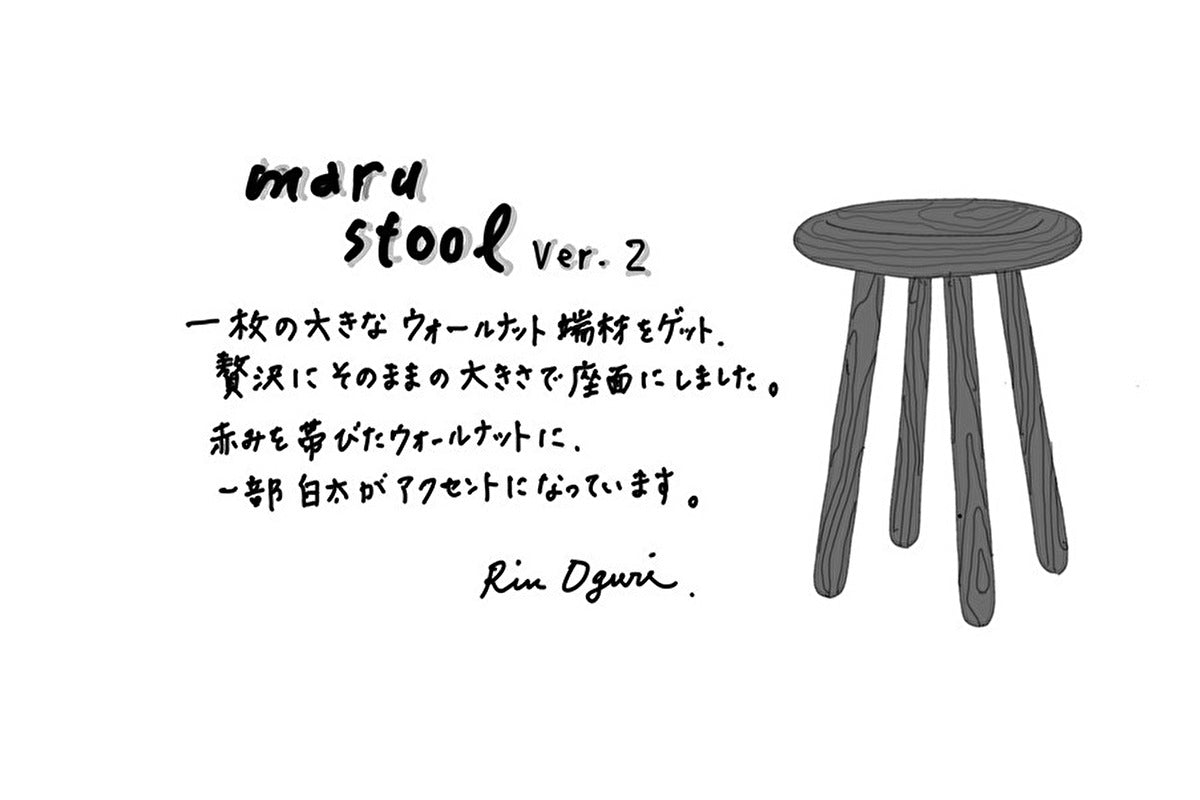 maru
stool Ver. 2
一枚の大きなウォールナット端材をゲット.
贅沢にそのままの大きさで座面にしました。
赤みを帯びたウォールナットに.
一部白太がアクセントになっています。
Rin Oguri.